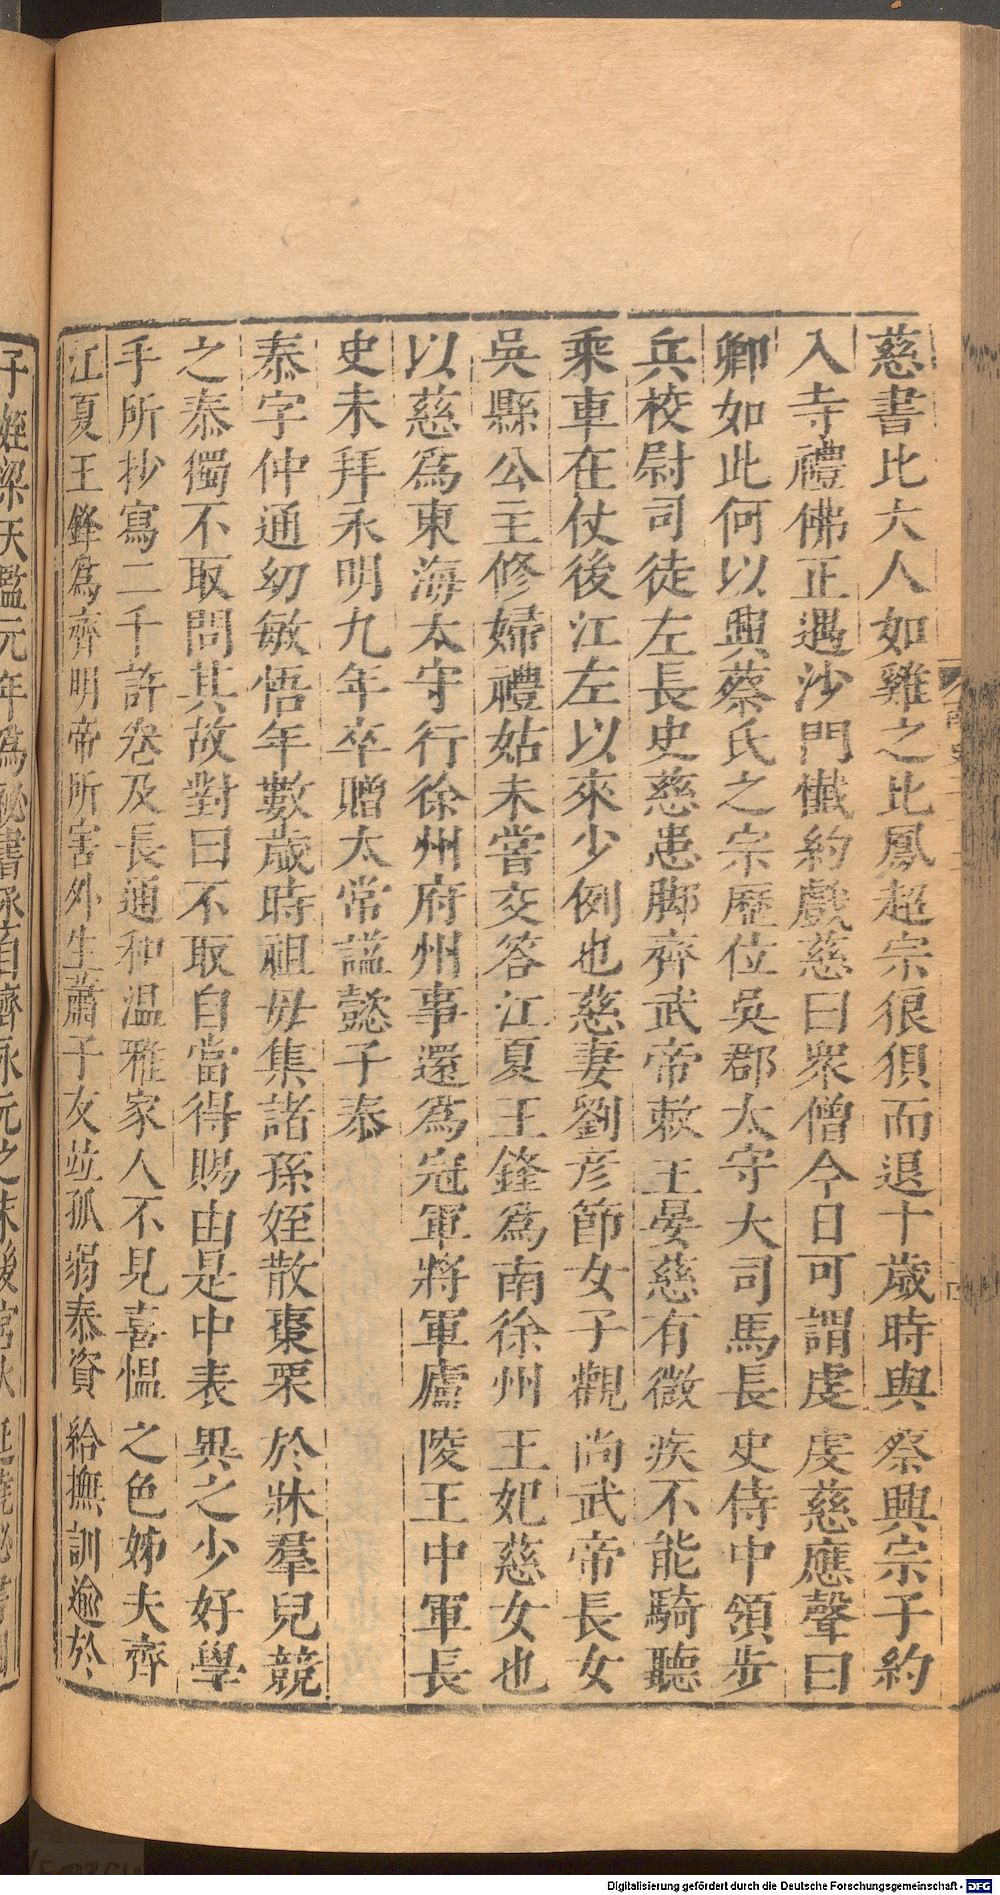 慈書比大人如雞之比鳳超宗狼狽而退十歲時與蔡興宗子約
入寺禮佛正遇沙門懺約戲慈曰衆僧今日可謂虔虔慈應聲曰
卿如此何以興蔡氏之宗歷位吳郡太守大司馬長史侍中領步
兵校尉司徒左長史慈患脚齊武帝敕王晏慈有微疾不能騎聽
乘車在仗後江左以來少例也慈妻劉彥節女子觀尚武帝長女
吳縣公主修婦禮姑未嘗交答江夏王鋒爲南徐州王妃慈女也
以慈爲東海太守行徐州府州事還爲冠軍將軍廬陵王中軍長
史未拜永明九年卒贈太常謚懿子泰
泰字仲通幼敏悟年數歲時祖母集諸孫姪散棗栗於牀羣兒競
之泰獨不取問其故對曰不取自當得賜由是中表異之少好學
手所抄寫二千許卷及長通和温雅家人不見喜愠之色姊夫齊
江夏王鋒爲齊明帝所害外生蕭子友竝孤弱泰資給撫訓逾於
子姪梁天監元年爲祕書丞自齊永元之末後宮火延燒祕書圖
Digitalisierung gefördert durch die Deutsche Forschungsgemeinschaft - DFG